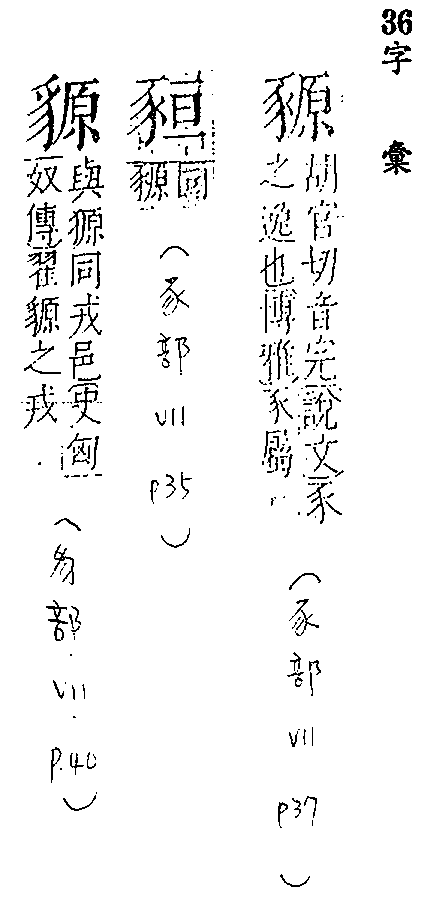 36 字彙
豲
胡官切音完說文豕
之逸也博雅豕屬
(豕部 VII p37)
同
豲
(豕部 VII p35)
䝠
與獂同戎邑史匈
奴傳翟䝠之戎
(豸部·VII·p.40)